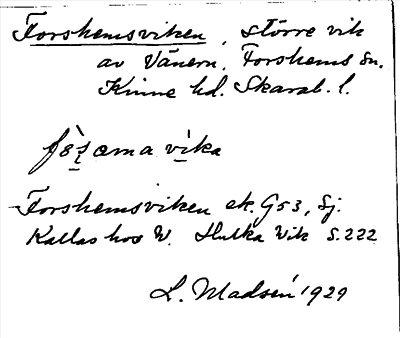 Forshemsviken, större vik
av Vänern, Forshems sn.
Kinne hd. Skarab. l.
fòs̠æma vi̠ka
Forshemsviken ek. G 53, Sj.
Kallas hos W. Hulka Vik s. 222
L. Madsén 1929